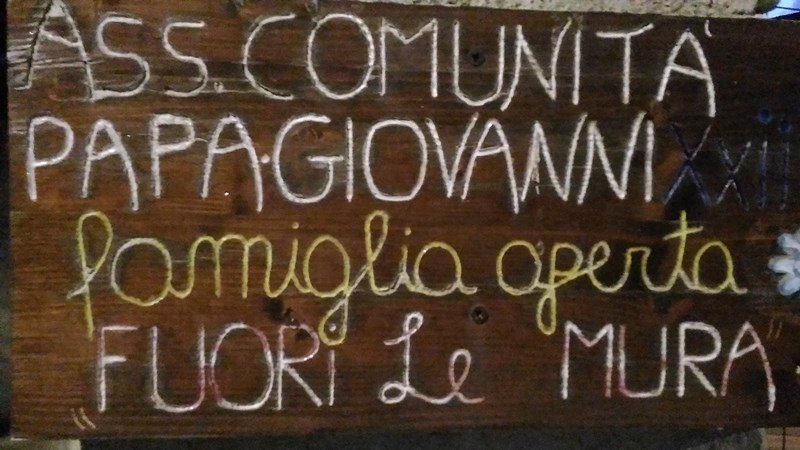 ASS. COMUNITÀ
PAPA·GIOVANNI XXiii
famiglia aperta
"FUORi Le MURA"